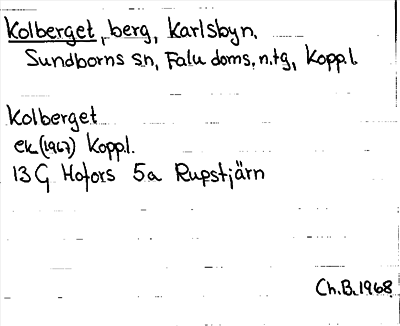 Kolberget, berg, Karlsbyn,
Sundborns sn, Falu doms. n.tg, Koppl.
Kolberget
ek (1967) Koppl.
13 G Hofors 5a Rupstjärn
Ch.B. 1968